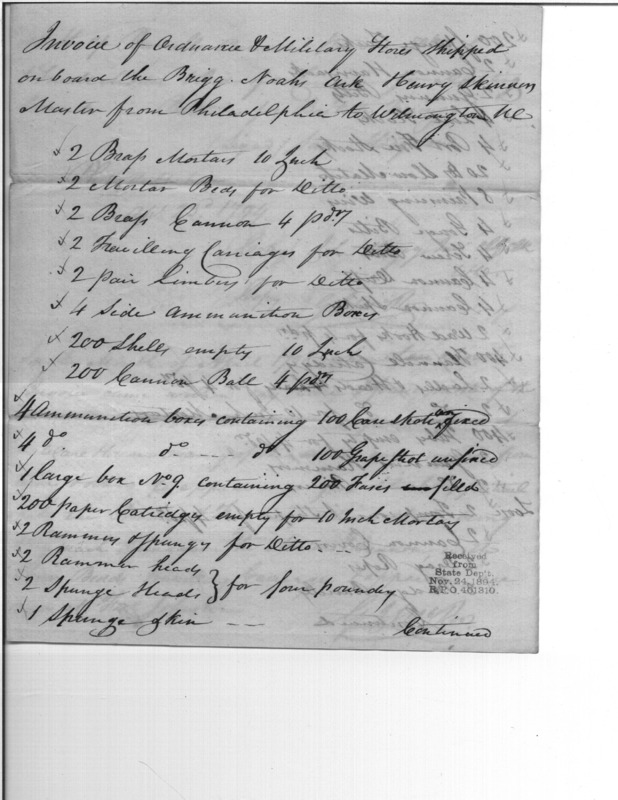 Invoice of Ordnance & Military Stores Shipped
on board the Brigg. Noahs Ark Henry Skinner
Master from Philadelphia to Wilmington NC
x 2 Brass Mortars 10 Inch
x 2 Mortar Beds for Ditto
x 2 Brass Cannon 4 pdrs
x 2 Travilling Carriages for Ditto
x 2 pair Limbers for Ditto
x 4 Side Ammunition Boxes
x 200 Shells empty 10 Inch
x 200 Cannon Ball 4 pdrs
x 4 Ammunition boxes containing 100 Case Shot unfixed
x 4 do do - - - do 100 Grapeshot unfixed
x 1 large box No 9 containing 200 Fuses filled
x 200 paper Catredges empty for 10 Inch Mortars
x 2 Rammers & Spunges for Ditto - -
x 2 Rammer heads
x 2 Spunge Heads } for four pounders
x 1 Spunge Skin - -
Continued
Received
from
State Dep't.
Nov. 24, 1894.
R. & P. O. 401310.